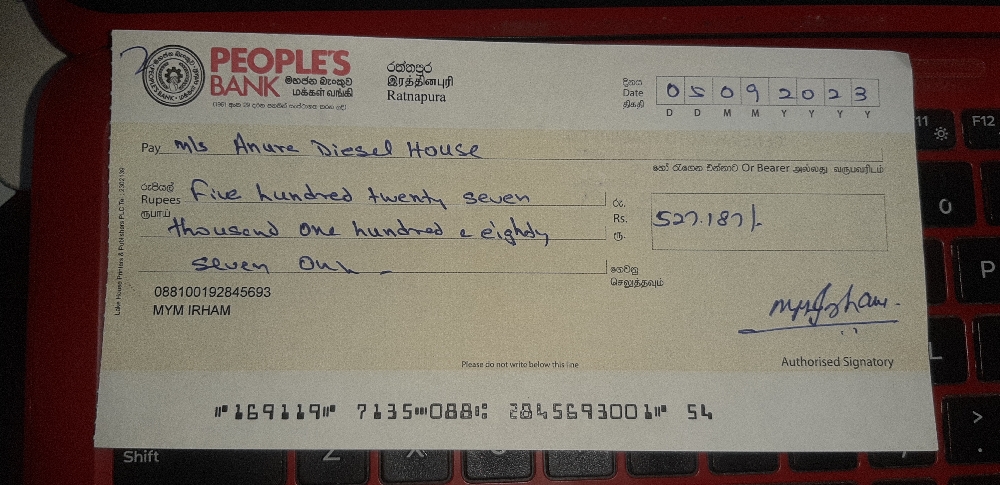 PEOPLE'S
BANK මහජන බැංකුව
மக்கள் வங்கி
රත්නපුර
இரத்தினபுரி
Ratnapura
දිනය
Date
திகதி
0 5 0 9 2 0 2 3
D D M M Y Y Y Y
Pay M/s Anura Diesel House
හෝ රැගෙන එන්නාට Or Bearer அல்லது வருபவரிடம்
රුපියල්
Rupees
ரூபாய்
Five hundred twenty seven
thousand one hundred & eighty
seven Only
රු.
Rs.
ரூ.
527.187/-
ගෙවනු
செலுத்தவும்
088100192845693
MYM IRHAM
Please do not write below this line
Authorised Signatory
Lake House Printers & Publishers PLC
⑈169119⑈ 7135⑉088⑆ 2845693001⑈ 54
11
F12
O
P
L
>
.
Shift
Z
X